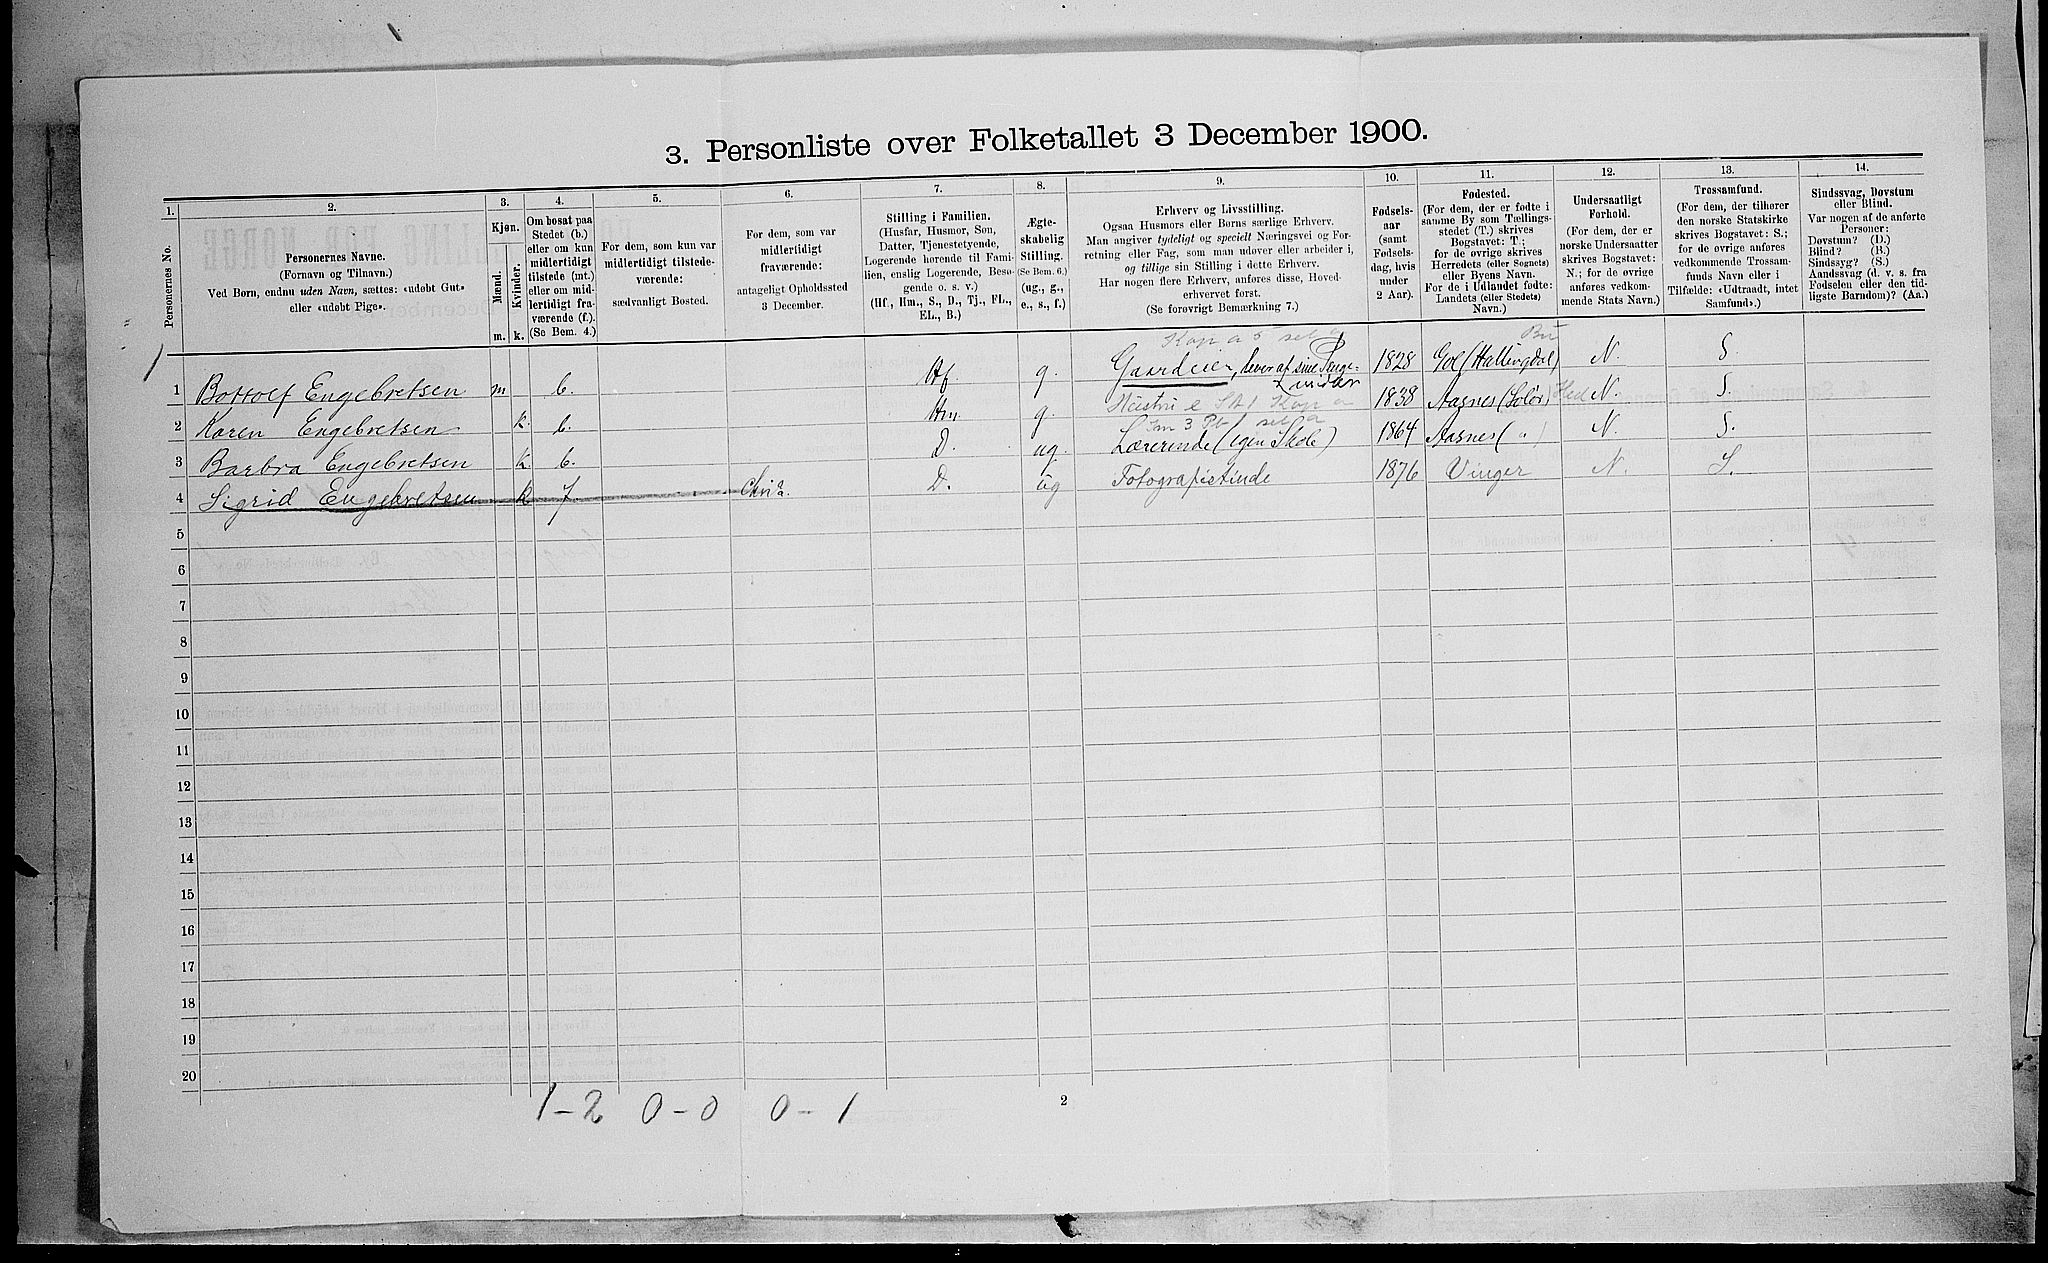 3. Personliste over Folketallet 3 December 1900.
1. 2. 3. 4. 5. 6. 7. 8. 9. 10. 11. 12. 13. 14.
Personernes No.
Personernes Navne.
(Fornavn og Tilnavn.)
Ved Børn, endnu uden Navn, sættes: «udøbt Gut»
eller «udøbt Pige».
Kjøn.
Mænd.
Kvinder.
m. k.
Om bosat paa
Stedet (b.)
eller om kun
midlertidigt
tilstede (mt.)
eller om mid-
lertidigt fra-
værende (f.).
(Se Bem. 4.)
For dem, som kun var
midlertidigt tilstede-
værende:
sædvanligt Bosted.
For dem, som var
midlertidigt
fraværende:
antageligt Opholdssted
3 December.
Stilling i Familien.
(Husfar, Husmor, Søn,
Datter, Tjenestetyende,
Logerende hørende til Fami-
lien, enslig Logerende, Besø-
gende o. s. v.)
(Hf., Hm., S., D., Tj., FL.,
EL., B.)
Ægte-
skabelig
Stilling.
(Se Bem. 6.)
(ug., g.,
e., s., f.)
Erhverv og Livsstilling.
Ogsaa Husmors eller Børns særlige Erhverv.
Man angiver tydeligt og specielt Næringsvei og For-
retning eller Fag, som man udøver eller arbeider i,
og tillige sin Stilling i dette Erhverv.
Har nogen flere Erhverv, anføres disse, Hoved-
erhvervet først.
(Se forøvrigt Bemærkning 7.)
Fødsels-
aar
(samt
Fødsels-
dag, hvis
under
2 Aar).
Fødested.
(For dem, der er fødte i
samme By som Tællings-
stedet (T.) skrives
Bogstavet: T.;
for de øvrige skrives
Herredets (eller Sognets)
eller Byens Navn.
For de i Udlandet fødte:
Landets (eller Stedets)
Navn.)
Undersaatligt
Forhold.
(For dem, der er
norske Undersaatter
skrives Bogstavet:
N.; for de øvrige
anføres vedkom-
mende Stats Navn.)
Trossamfund.
(For dem, der tilhører
den norske Statskirke
skrives Bogstavet: S.;
for de øvrige anføres
vedkommende Trossam-
funds Navn eller i
Tilfælde: «Udtraadt, intet
Samfund».)
Sindssvag, Døvstum
eller Blind.
Var nogen af de anførte
Personer:
Døvstum? (D.)
Blind? (B.)
Sindssyg? (S.)
Aandssvag (d. v. s. fra
Fødselen eller den tid-
ligste Barndom)? (Aa.)
1
Bu
1 Bottolf Engebretsen m b. Hf. g. Gaardeier, lever af sine Penge- 1828 Gol (Hallingdal) N. S.
2 Karen Engebretsen k. b. Hm g. 1838 Aasnes (Solør) Hed N. S.
3 Barbra Engebretsen k. b. D. ug. Lærerinde (egen Skole) 1864 Aasnes ( " ) N. S.
4 Sigrid Engebretsen k f. Chria. D. ug Fotografistinde 1876 Vinger N. S.
5
6
7
8
9
10
11
12
13
14
15
16
17
18
19
20
1-2 0-0 0-1
2